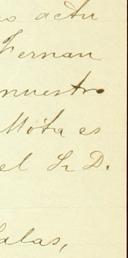 s actu
Fernan
nuestro
Mota es
el Sr D.
alas,